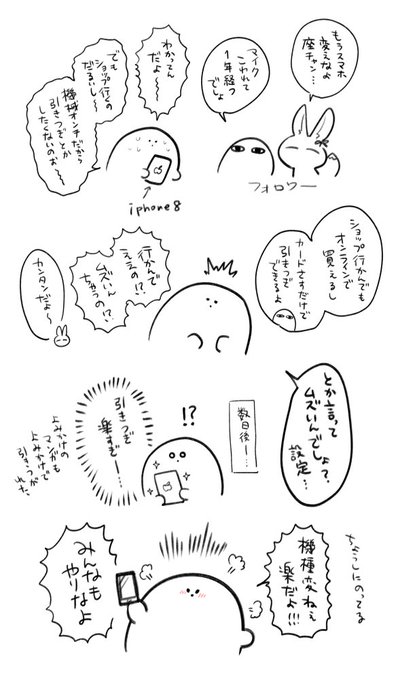 もうスマホ
変えなよ
座チャン…
マイク
こわれて
1年経つ
でしょ
わかってん
だよ〜〜
でも
ショップ行くの
だるいし〜
機械オンチだから
引きつぎとか
したくないのお〜〜
フォロワー
iphone8
ショップ行かんでも
オンラインで
買えるし
カードさすだけで
引きつぎ
できるよ
行かんで
ええの!?
ムズいん
ちゃうの!?
カンタンだよ〜
とか言って
ムズいんでしょ?
設定…
数日後ー…
!?
引きつぎ
楽すぎー…
よみかけの
マンガも
よみかけで
引きつがれた
ちょうしにのってる
機種変ねぇ
楽だよ!!!
みんなも
やりなよ